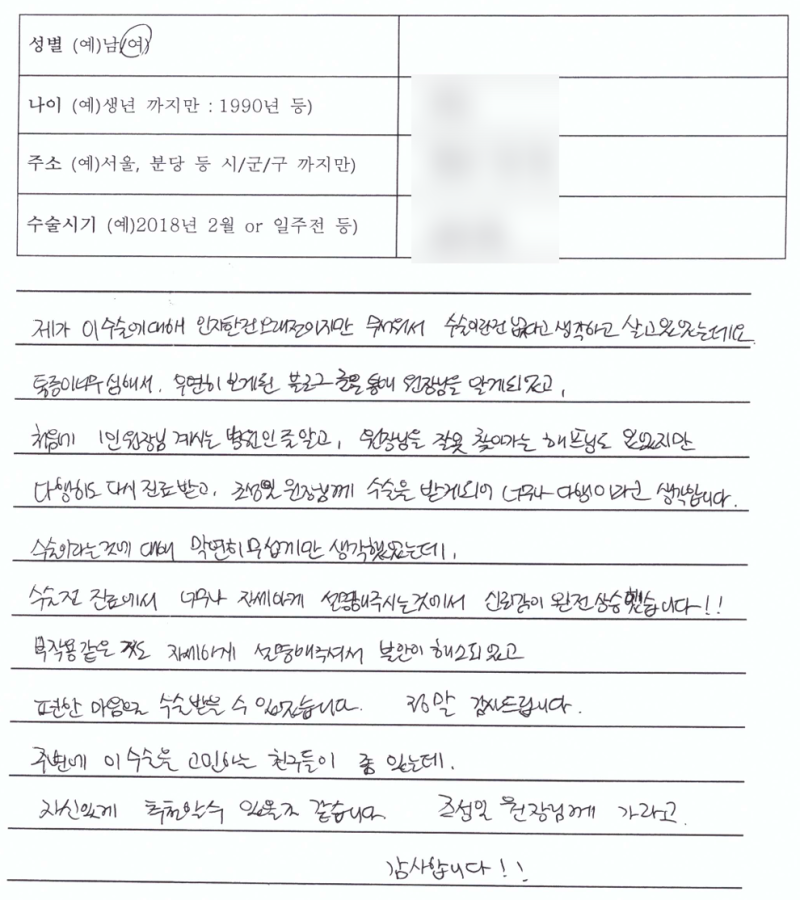 성별 (예)남/여)
나이 (예)생년 까지만 : 1990년 등)
주소 (예)서울, 분당 등 시/군/구 까지만)
수술시기 (예)2018년 2월 or 일주전 등)
제가 이수술에대해 인지한건 오래전이지만 무서워서 수술이란건 없다고 생각하고 살고있었는데요
통증이너무 심해서. 우연히 보게된 블로그 글을 통해 원장님을 알게되었고,
처음에 1인 원장님 계시는 병원인 줄알고, 원장님을 잘못 찾아가는 해프닝도 있었지만
다행히도 다시 진료받고, 조성일 원장님께 수술을 받게되어 너무나 다행이라고 생각합니다.
수술이라는것에 대해 막연히무섭게만 생각했었는데,
수술전 진료에서 너무나 자세하게 설명해주시는것에서 신뢰감이 완전상승했습니다!!
부작용같은 것도 자세하게 설명해주셔서 불안이 해소되었고
편한 마음으로 수술받을 수 있었습니다. 정말 감사드립니다.
주변에 이 수술을 고민하는 친구들이 좀 있는데.
자신있게 추천할수 있을것 같습니다 조성일 원장님께 가라고.
감사합니다!!